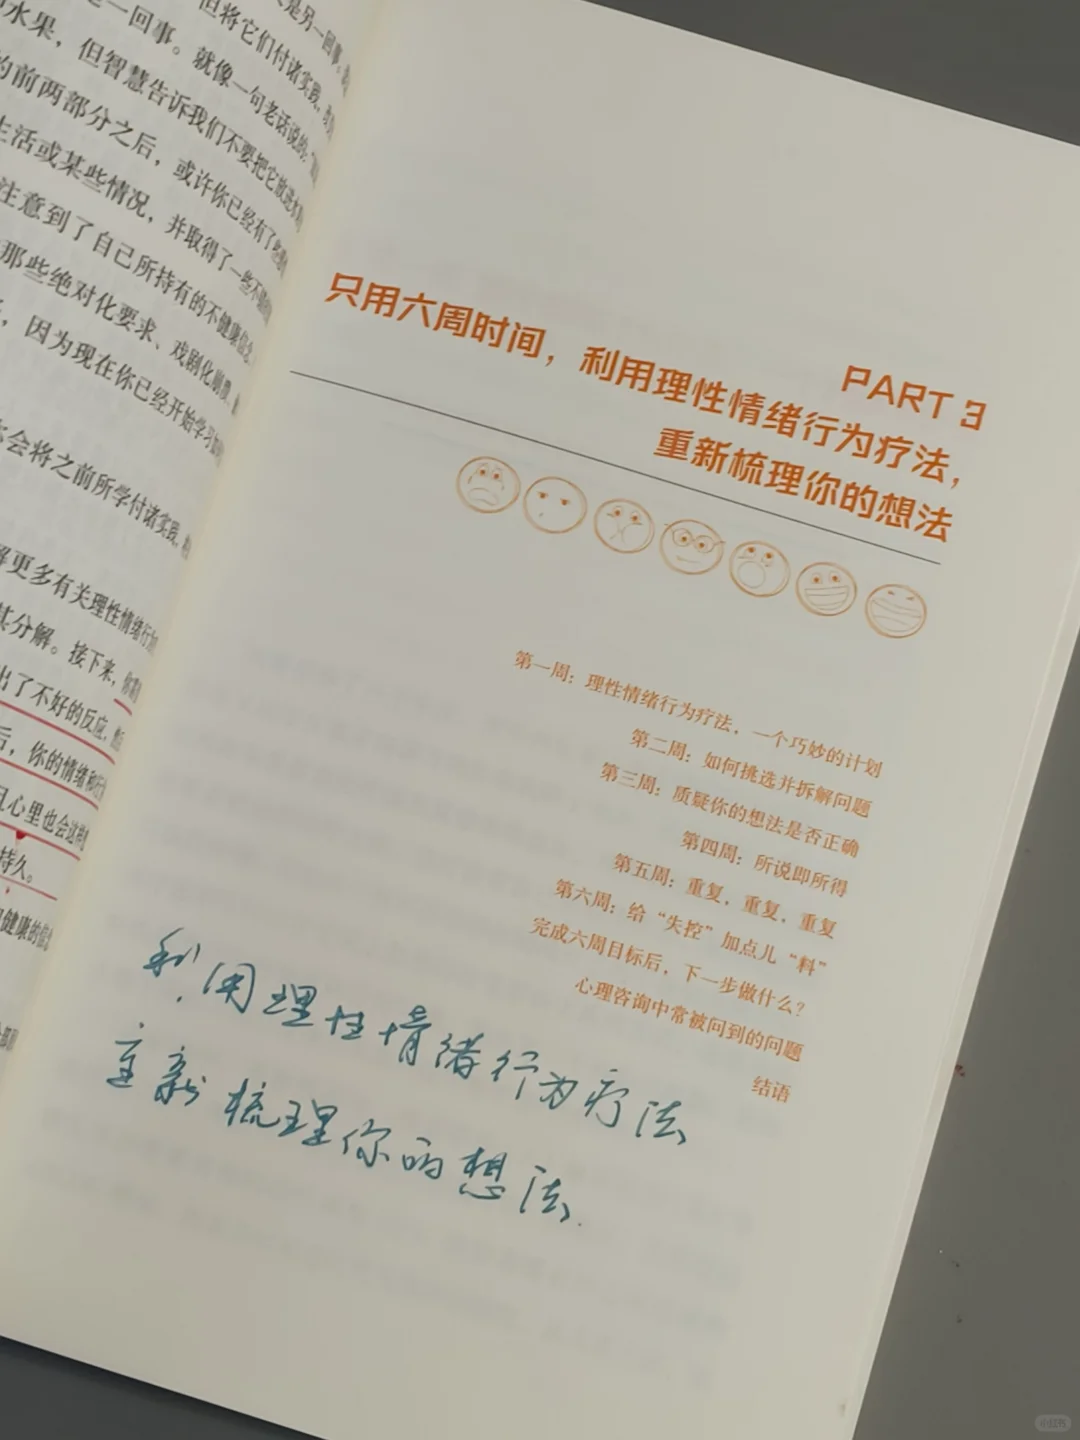 是另一回事。
是一回事。但将它们付诸实践，
水果，但智慧告诉我们不要把它放进水果
的前两部分之后，或许你已经有了些
生活或某些情况，并取得了一些不错的
注意到了自己所持有的不健康信念，
那些绝对化要求、戏剧化
，因为现在你已经开始学习如何
会将之前所学付诸实践，
解更多有关理性情绪行为
其分解。接下来，你需要
出了不好的反应，
后，你的情绪和行
且心里也会这样
持久。
健康的信念
PART 3
只用六周时间，利用理性情绪行为疗法，
重新梳理你的想法
第一周：理性情绪行为疗法，一个巧妙的计划
第二周：如何挑选并拆解问题
第三周：质疑你的想法是否正确
第四周：所说即所得
第五周：重复，重复，重复
第六周：给“失控”加点儿“料”
完成六周目标后，下一步做什么？
心理咨询中常被问到的问题
结语
利用理性情绪行为疗法
重新梳理你的想法.
小红书